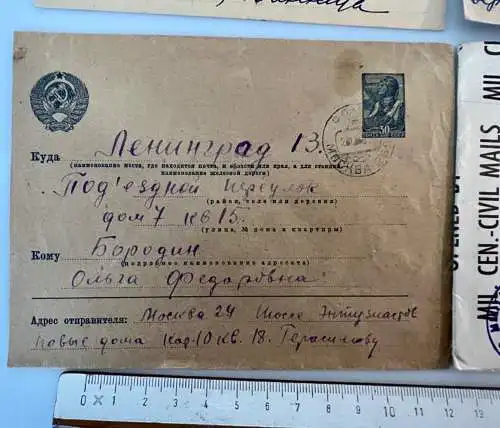 Винница
Ленинград 13.
Куда
(наименование места, где находится почта, и области или края, а для станций
наименование железной дороги)
Под'ездной переулок
(район, село или деревня)
дом 7 кв 15.
(улица, № дома и квартиры)
Кому Бородин
(подробное наименование адресата)
Ольга Федоровна
Адрес отправителя: Москва 24 Шоссе Энтузиастов
Новые дома Кор. 10 кв. 18. Герасимову
30
МОСКВА
OPENED BY
MIL. CEN.-CIVIL MAILS
0 1 2 3 4 5 6 7 8 9 10 11 12 13